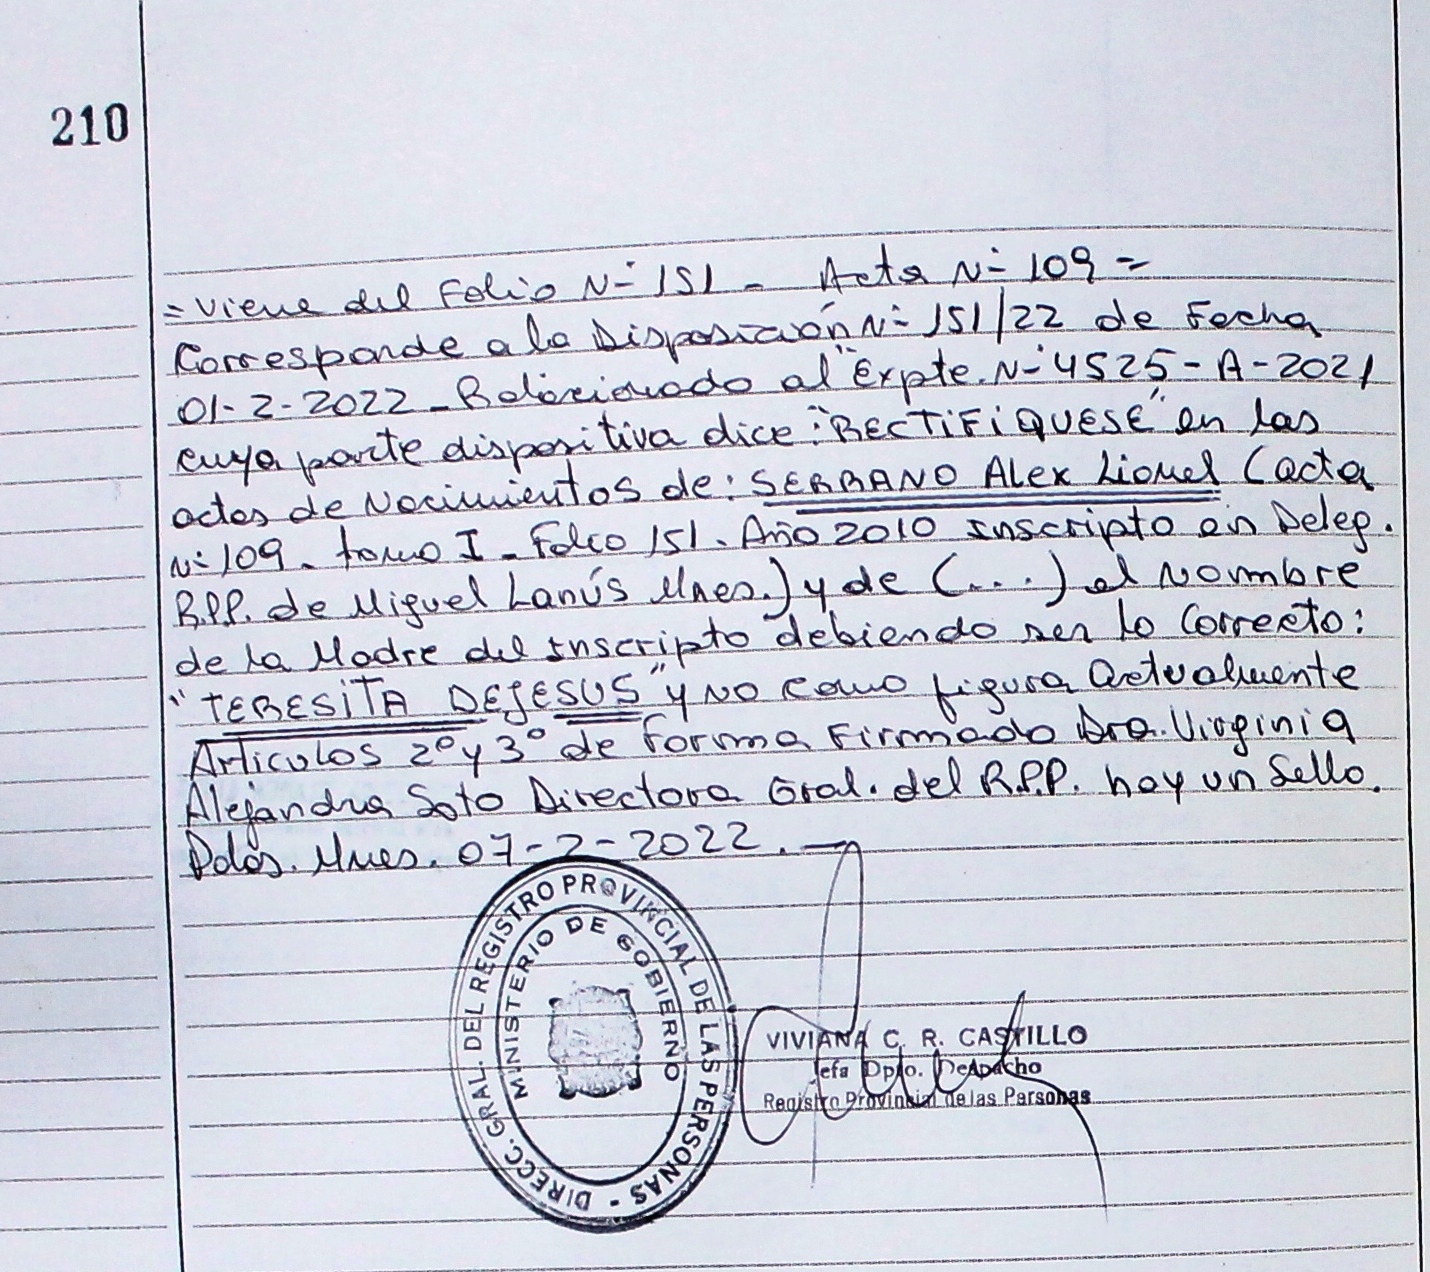 210
= Viene del Folio N° 151 - Acta N° 109 =
Corresponde a la Disposición N° 151/22 de Fecha
01-2-2022 - Relacionado al Expte. N° 4525-A-2021
cuya parte dispositiva dice: "RECTIFIQUESE" en las
actas de Nacimientos de: SERRANO Alex Lionel (acta
N° 109 - tomo I - Folio 151. Año 2010 inscripto en Deleg.
R.P.P. de Miguel Lanús Mnes.) y de (...) el Nombre
de la Madre del inscripto debiendo ser lo Correcto:
"TERESITA DEJESUS" y no como figura Actualmente
Articulos 2° y 3° de forma Firmado Dra. Virginia
Alejandra Soto Directora Gral. del R.P.P. hay un Sello.
Pdas. Mnes. 07-2-2022.-
DIRECC. GRAL. DEL REGISTRO PROVINCIAL DE LAS PERSONAS -
MINISTERIO DE GOBIERNO
VIVIANA C. R. CASTILLO
Jefa Dpto. Despacho
Registro Provincial de las Personas